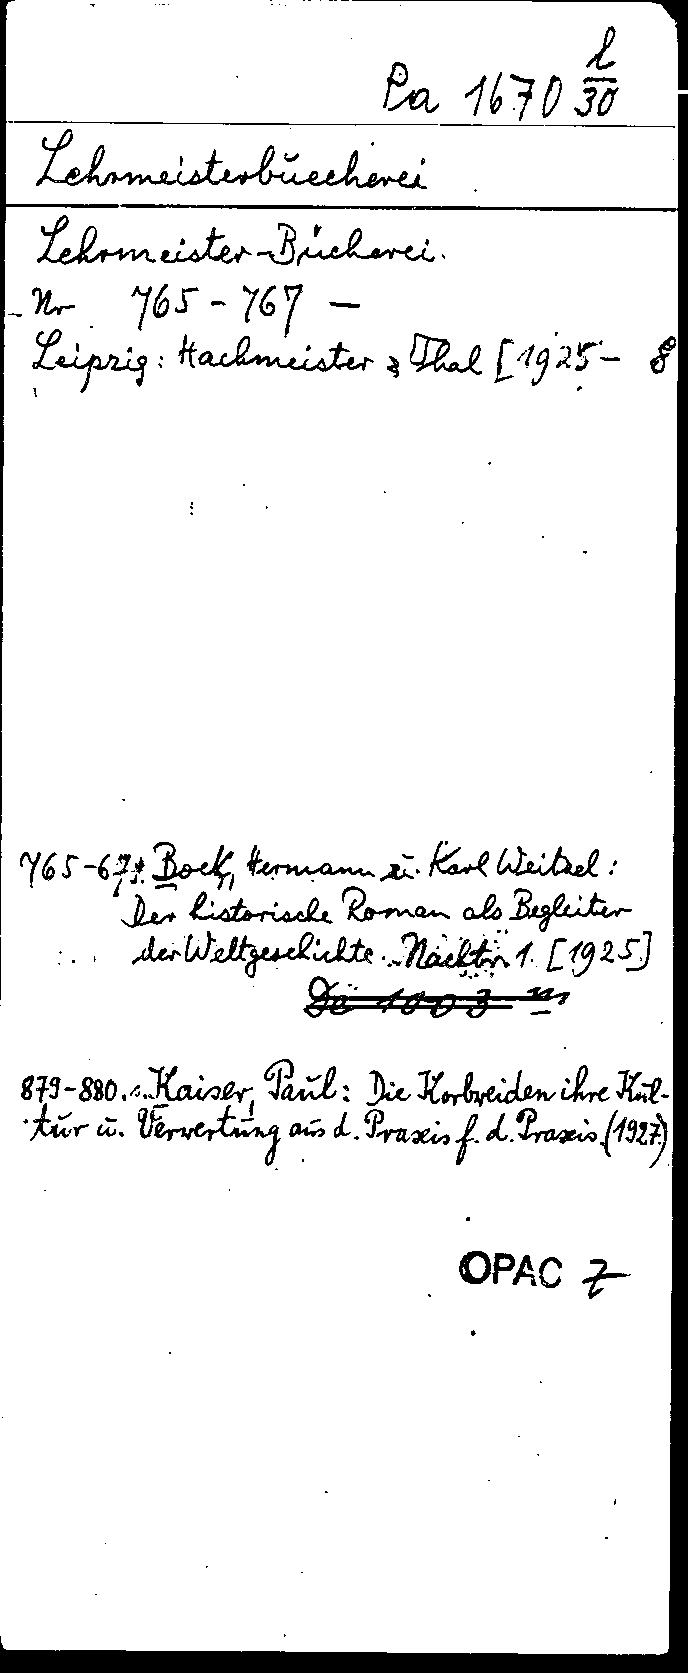 Pa 1670 l/30
Lehrmeisterbuecherei
Lehrmeister-Bücherei.
Nr 765-767 —
Leipzig: Hachmeister & Thal [1925- 8
765-67 s. Bock, Hermann u. Karl Weitzel:
Der historische Roman als Begleiter
der Weltgeschichte. Nachtr. 1. [1925]
De 1003 m
879-880. s. Kaiser, Paul: Die Korbweiden ihre Kul-
tur u. Verwertung aus d. Praxis f. d. Praxis. (1927.)
OPAC Z